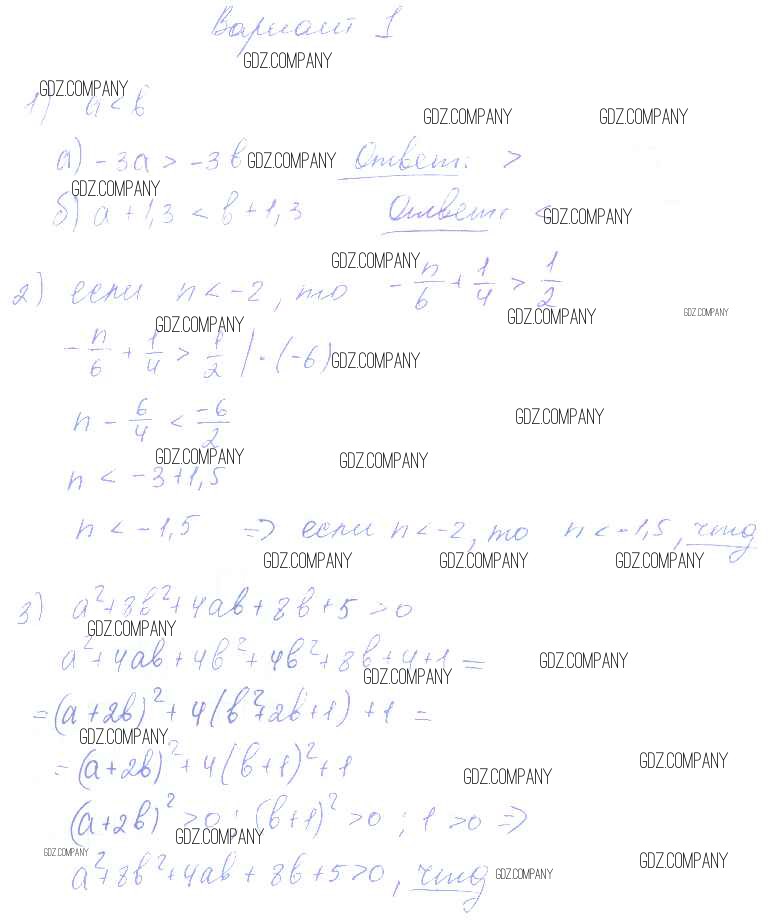 Вариант 1
GDZ.COMPANY
GDZ.COMPANY
1) a < b
GDZ.COMPANY GDZ.COMPANY
а) -3a > -3b GDZ.COMPANY Ответ: >
GDZ.COMPANY
б) a + 1,3 < b + 1,3 Ответ: < GDZ.COMPANY
GDZ.COMPANY
2) если n < -2, то -n/6 + 1/4 > 1/2
GDZ.COMPANY GDZ.COMPANY GDZ.COMPANY
-n/6 + 1/4 > 1/2 | · (-6) GDZ.COMPANY
n - 6/4 < -6/2 GDZ.COMPANY
GDZ.COMPANY GDZ.COMPANY
n < -3 + 1,5
n < -1,5 => если n < -2, то n < -1,5, чтд
GDZ.COMPANY GDZ.COMPANY GDZ.COMPANY
3) a² + 8b² + 4ab + 8b + 5 > 0
GDZ.COMPANY
a² + 4ab + 4b² + 4b² + 8b + 4 + 1 = GDZ.COMPANY
GDZ.COMPANY
= (a + 2b)² + 4(b² + 2b + 1) + 1 =
GDZ.COMPANY
= (a + 2b)² + 4(b + 1)² + 1 GDZ.COMPANY
GDZ.COMPANY
(a + 2b)² > 0; (b + 1)² > 0; 1 > 0 =>
GDZ.COMPANY
GDZ.COMPANY GDZ.COMPANY
a² + 8b² + 4ab + 8b + 5 > 0, чтд GDZ.COMPANY